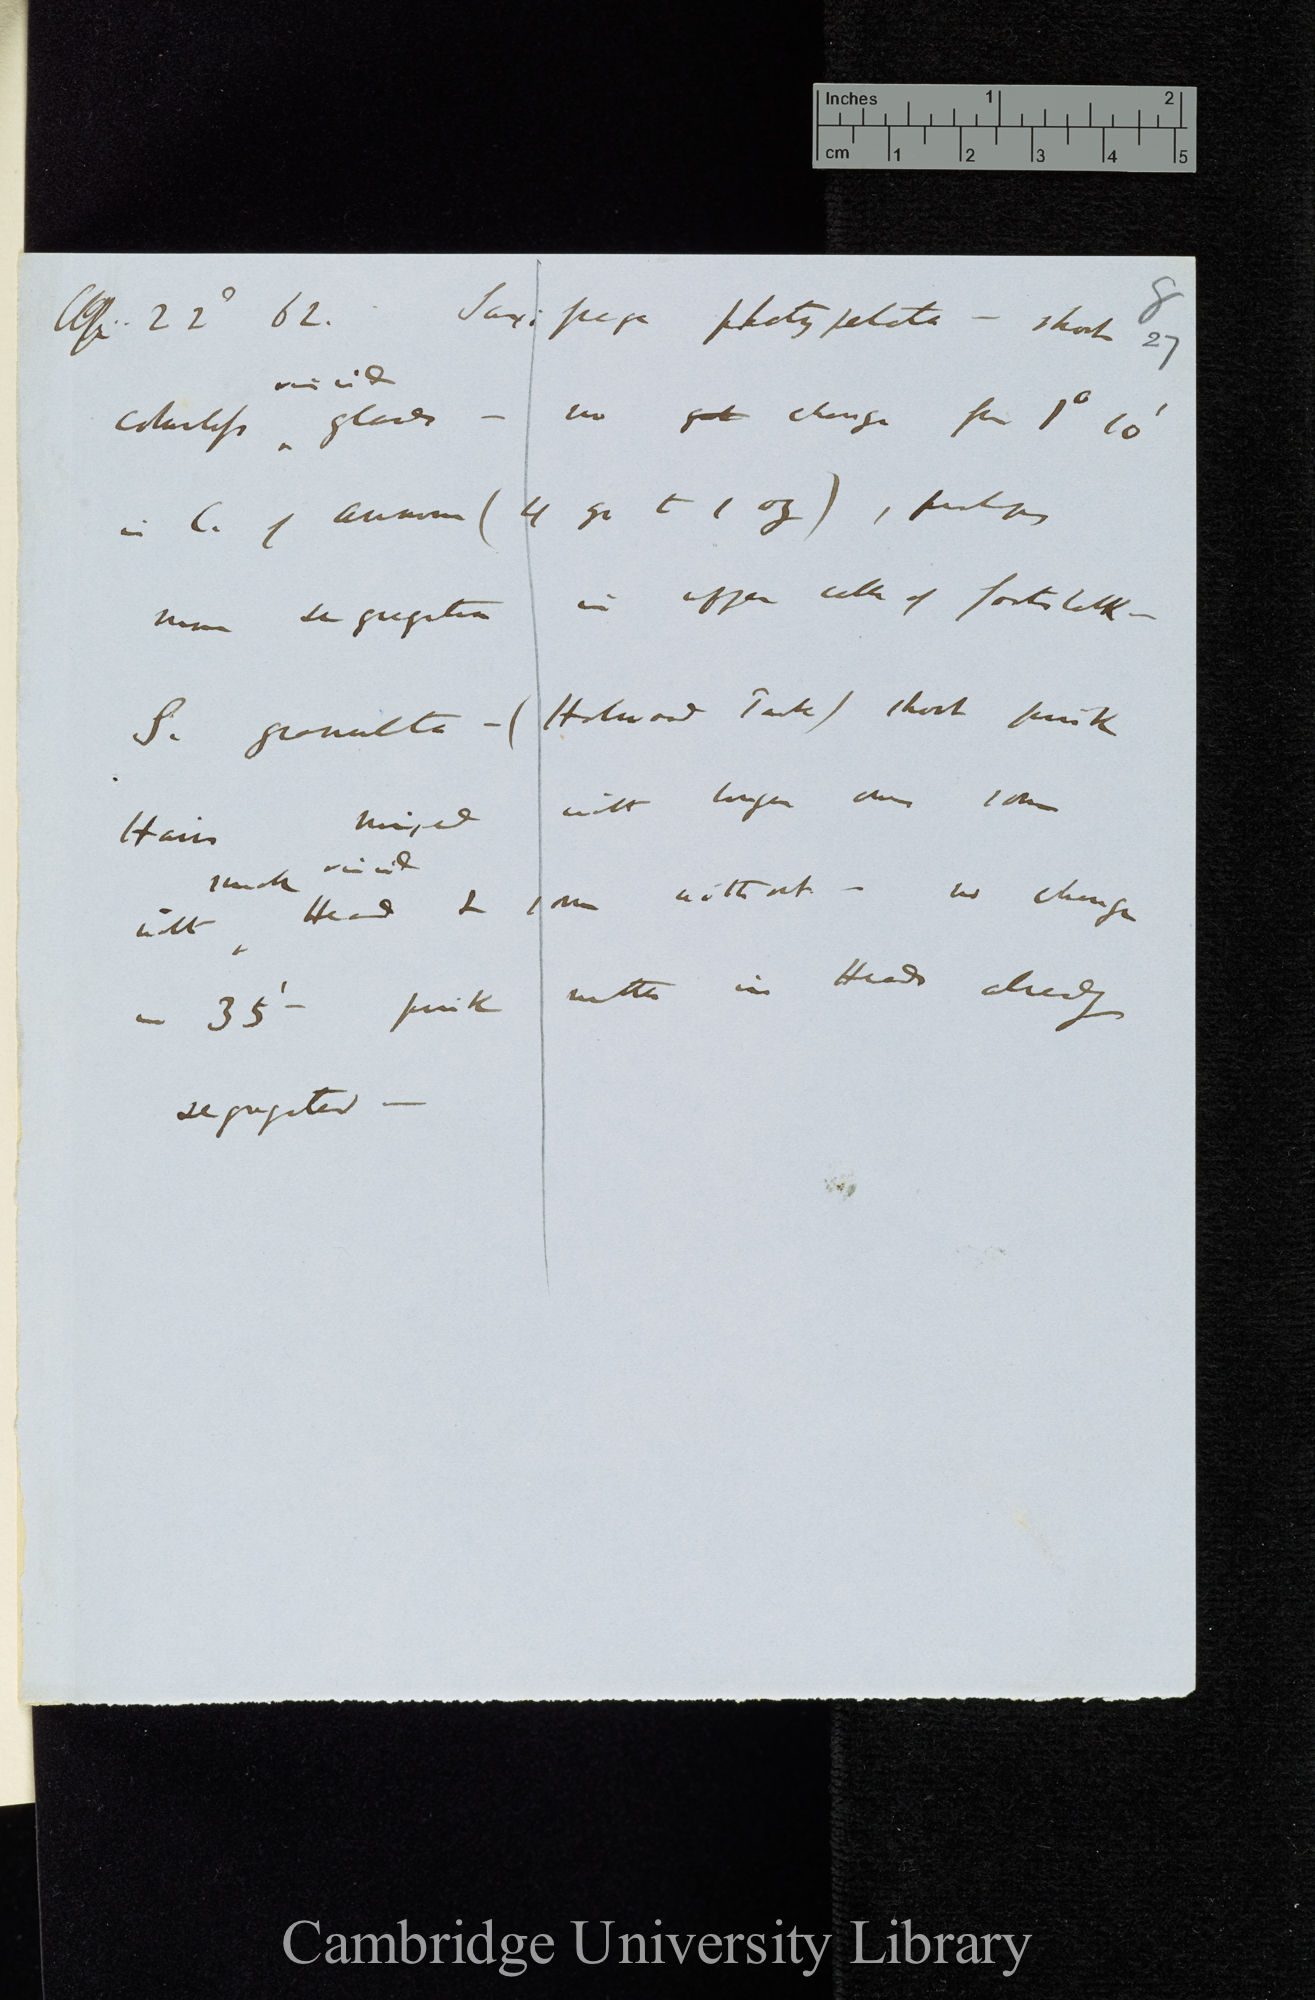 Inches 1 2
cm 1 2 3 4 5
8
27
Ap. 22° 62. Saxifraga platypetala — short
viscid
colourless ^ glands — no got change for 1° 10'
in C. of ammon (4 gr to 1 oz), perhaps
more segregation in upper cells of footstalk —
S. granulata — (Holwood Park) short pink
Hairs mixed with longer ones some
much viscid
with ^ Head & some without — no change
in 35' — pink matter in Heads already
segregated —
Cambridge University Library